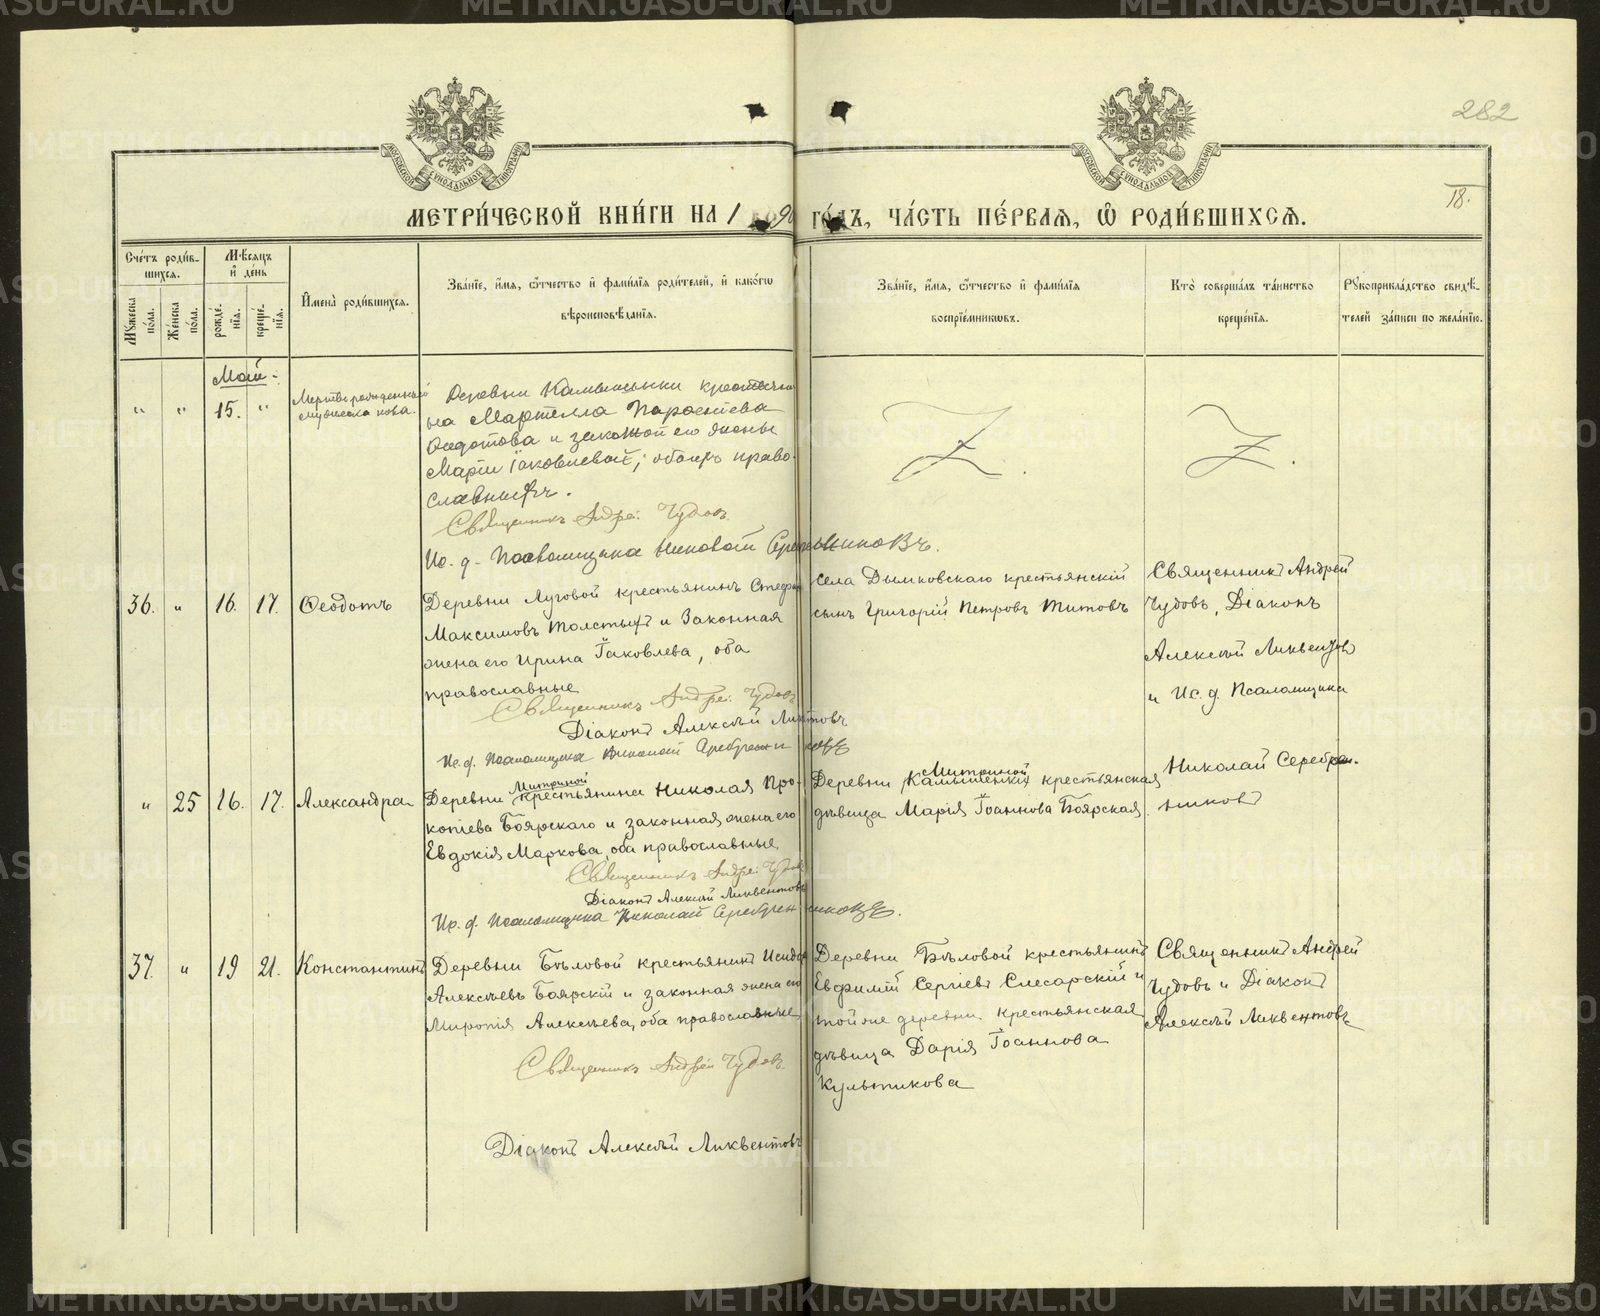 282
18.
МЕТРИ́ЧЕСКОЙ КНИ́ГИ НА 1 90 ГО́ДЪ, ЧА́СТЬ ПЕ́РВАЯ, Ѡ҆ РОДИ́ВШИХСЯ.
Сче́тъ роди́вшихся.
Мꙋ́жеска по́ла.
Же́нска по́ла.
Мѣ́сяцъ и҆ де́нь
рожде́нїѧ.
креще́нїѧ.
И҆мена̀ роди́вшихся.
Зва́нїе, и҆́мѧ, ѻ҆́тчество и҆ фами́лїѧ роди́телей, и҆ како́гѡ
вѣроисповѣ́данїѧ.
Зва́нїе, и҆́мѧ, ѻ҆́тчество и҆ фами́лїѧ
воспрїе́мникѡвъ.
Кто̀ соверша́лъ та́инство
креще́нїѧ.
Рꙋкоприкла́дство свидѣ́-
телей за́писи по жела́нїю.
Май -
" " 15. "
Мертворожденный
мужеска пола.
Деревни Камышенки крестьяни
на Мартемна
Федотова и законной его жены
Маріи Іаковлевой, обоихъ право-
славныхъ.
Священникъ Андре: Чудовъ
Ис. д. Псаломщика Николай Серебренниковъ.
36. " 16. 17. Ѳеодотъ
Деревни Луговой крестьянинъ Стефан
Максимовъ Толстых и Законная
жена его Ирина Іаковлева, оба
православные
Священникъ Андре: Чудовъ
Діаконъ Алексѣй Ликвентовъ
Ис. д. Псаломщика Николай Серебренниковъ
Села Дымковскаго крестьянскій
сынъ Григорій Петровъ Титовъ
Священникъ Андрей
Чудовъ, Діаконъ
Алексѣй Ликвентовъ
и Ис. д. Псаломщика
Николай Серебрен-
никовъ
" 25 16. 17. Александра
Митриной
Деревни крестьянина Николая Про-
копіева Боярскаго и законная жена его
Евдокія Маркова, оба православные
Священникъ Андре: Чудов
Діаконъ Алексѣй Ликвентовъ
Ис. д. Псаломщика Николай Серебренниковъ.
Митриной
Деревни Камышенки крестьянская
дѣвица Марія Іоаннова Боярская
37. " 19 21. Константинъ
Деревни Бѣловой крестьянинъ Исидор
Алексѣевъ Боярскій и законная жена его
Миропія Алексѣева, оба православные
Священникъ Андрей Чудовъ
Діаконъ Алексѣй Ликвентовъ
Деревни Бѣловой крестьянинъ
Евфимій Сергіевъ Слесарскій и
той же деревни крестьянская
дѣвица Дарія Іоаннова
Культикова
Священникъ Андрей
Чудовъ и Діаконъ
Алексѣй Ликвентовъ
METRIKI.GASO-URAL.RU